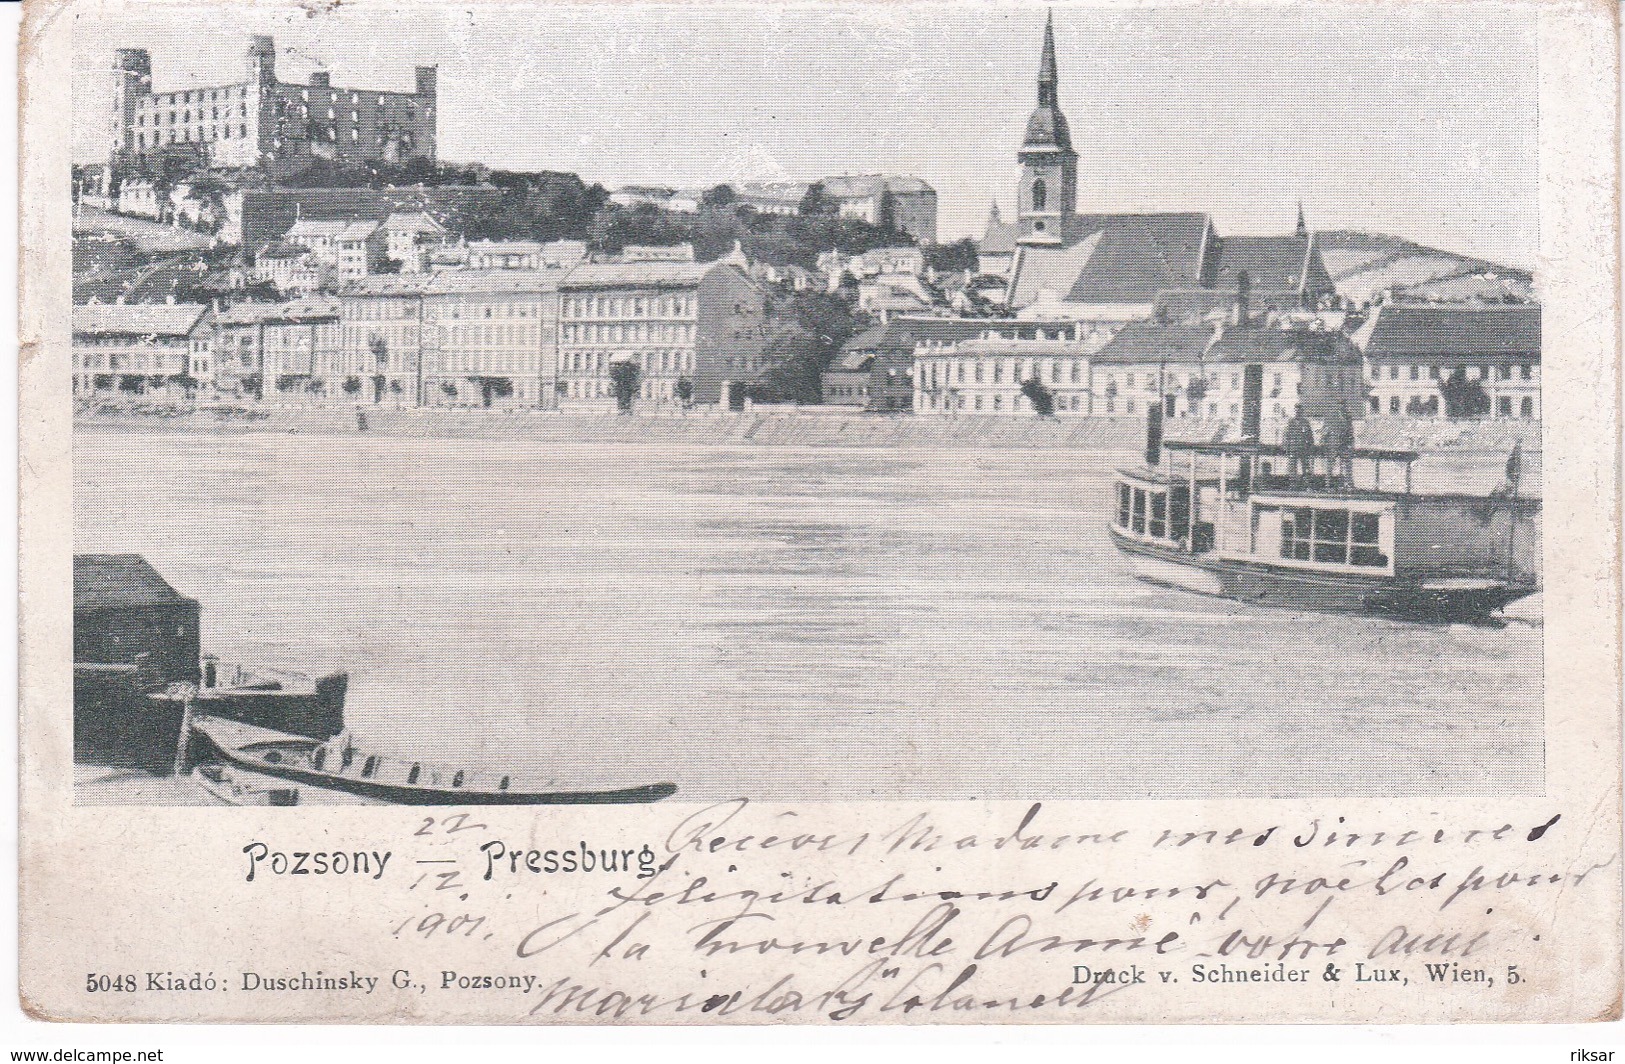 Pozsony — Pressburg.
22
12
1901.
Recévez Madame mes Sincères
féligitations pour, noêl et pour
la nouvelle Anné votre ami
5048 Kiadó: Duschinsky G., Pozsony.
Druck v. Schneider & Lux, Wien, 5.
www.delcampe.net
riksar